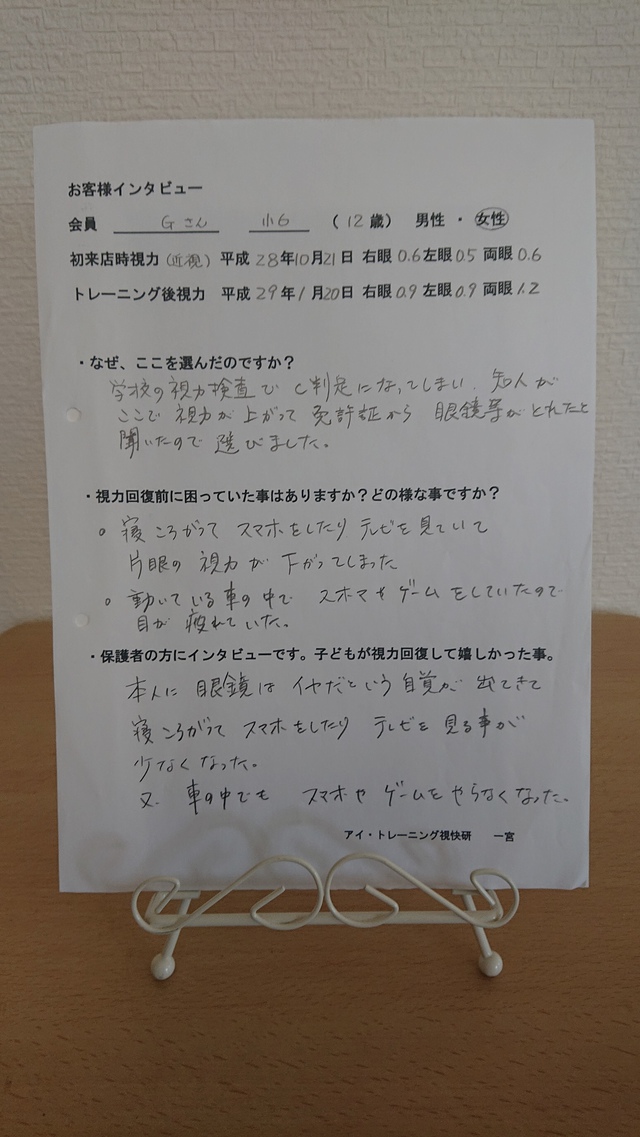 お客様インタビュー
会員 Gさん 小6 (12歳) 男性・女性
初来店時視力(近視) 平成28年10月21日 右眼0.6左眼0.5両眼0.6
トレーニング後視力 平成29年1月20日 右眼0.9左眼0.9両眼1.2
・なぜ、ここを選んだのですか?
学校の視力検査でC判定になってしまい、知人が
ここで視力が上がって免許証から眼鏡等がとれたと
聞いたので選びました。
・視力回復前に困っていた事はありますか?どの様な事ですか?
○寝ころがってスマホをしたりテレビを見ていて
片眼の視力が下がってしまった
○動いている車の中でスホマやゲームをしていたので
目が疲れていた。
・保護者の方にインタビューです。子どもが視力回復して嬉しかった事。
本人に眼鏡はイヤだという自覚が出てきて
寝ころがってスマホをしたりテレビを見る事が
少なくなった。
又、車の中でもスマホやゲームをやらなくなった。
アイ・トレーニング視快研 一宮